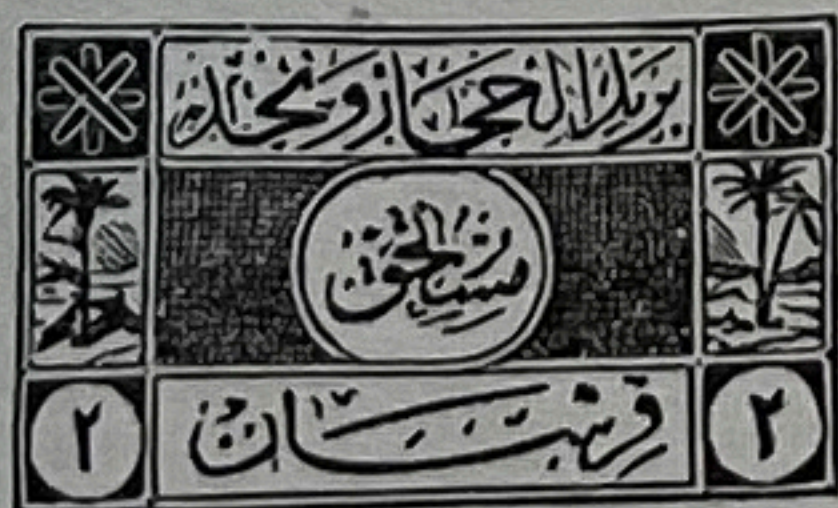 بريد الحجاز ونجد
مستحق
قرشان
٢ ٢